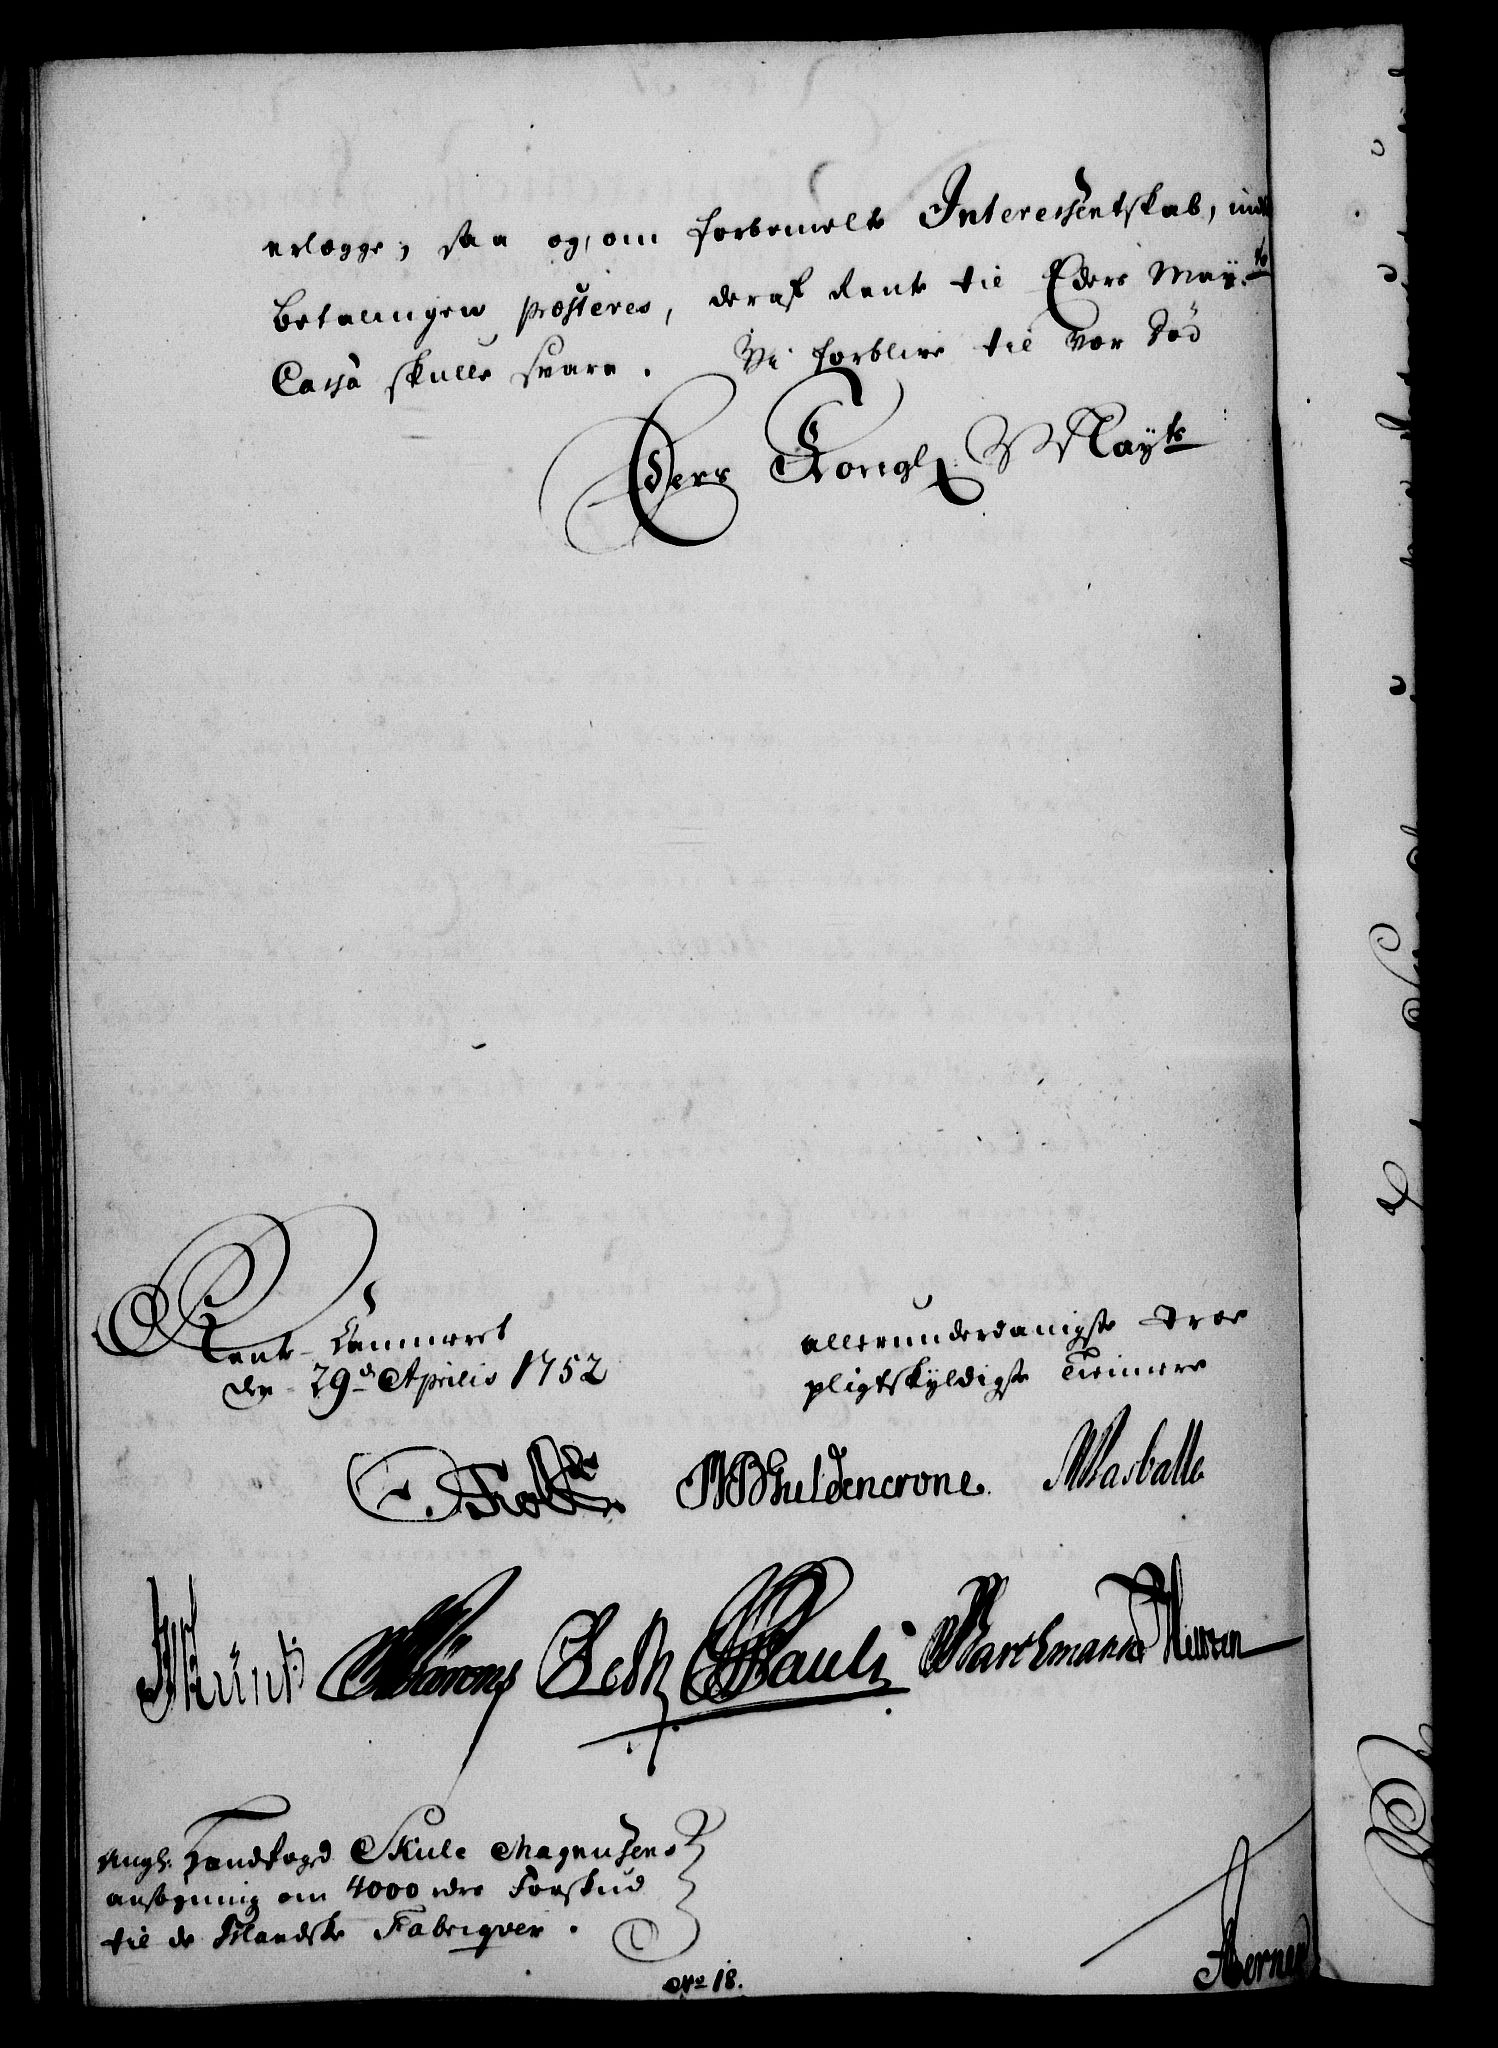 erlægge; saa og, om forbemelte Interessentskab, indt
betalingen præsteres, deraf Rente til Eders May:ts
Cassa skulle svare. Vi forblive til vor Død
Eders Kongl May:ts
Rente-Cammeret
den 29de Aprilis 1752
allerunderdanigste troe
pligtskyldigste Tienere
Holst WBGuldencrone
Pauli
Angl. Landfoged Skule Magnusens
ansøgning om 4000 rdrs Forskud
til de Islandske Fabriqver.
No 18.